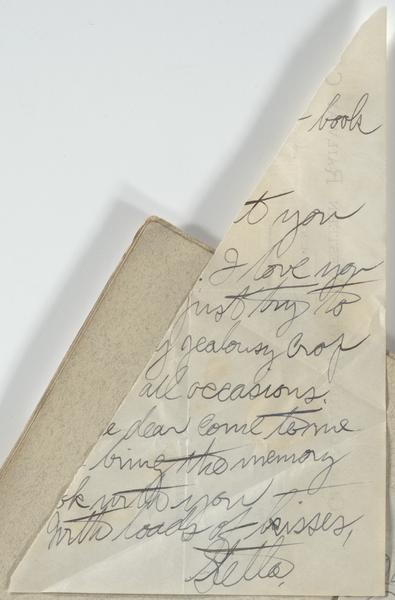 - book
t you
. I love you
just try to
y jealousy crop
all occasions.
e dear come to me
bring the memory
ok with you
With loads of kisses,
Stella.